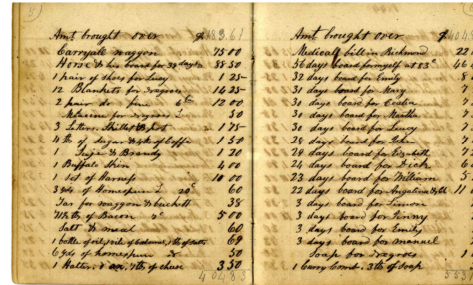 Amt brought over $ 483.61
Carryall waggon 75 00
Horse & his board for days 88 50
1 pair of shoes for Lucy 1 25
12 Blankets for negroes 14 25
2 pair do fine 12 00
Medicine for negroes 50
3 Letters 1 75
lb of Sugar & of Coffee 1 50
Sugar & Brandy 1 20
1 Buffalo Skin 4 00
1 set of Harness 10 00
3 yds of Homespun 60
Tar for waggon & buckett 38
lbs of Bacon 5 00
Salt & meal 60
1 bottle of oil 68
6 yds of homespun 50
1 Halter, & ax, lbs of cheese 3 50
Amt brought over $
Medical bill in Richmond 22
56 days board for myself at 83c 46
32 days board for Emily 8
31 days board for Mary 7
30 days board for Cealia 7
30 days board for Martha 7
30 days board for Lucy 7
28 days board for John
28 days board for Elizabeth 7
24 days board for Dick 6
23 days board for William 5
22 days board for Angelina 11
3 days board for Simon
3 days board for Finny
3 days board for Emily
3 days board for manuel
Soap for negroes 1
1 Curry Comb. 3 lbs of Soap 1